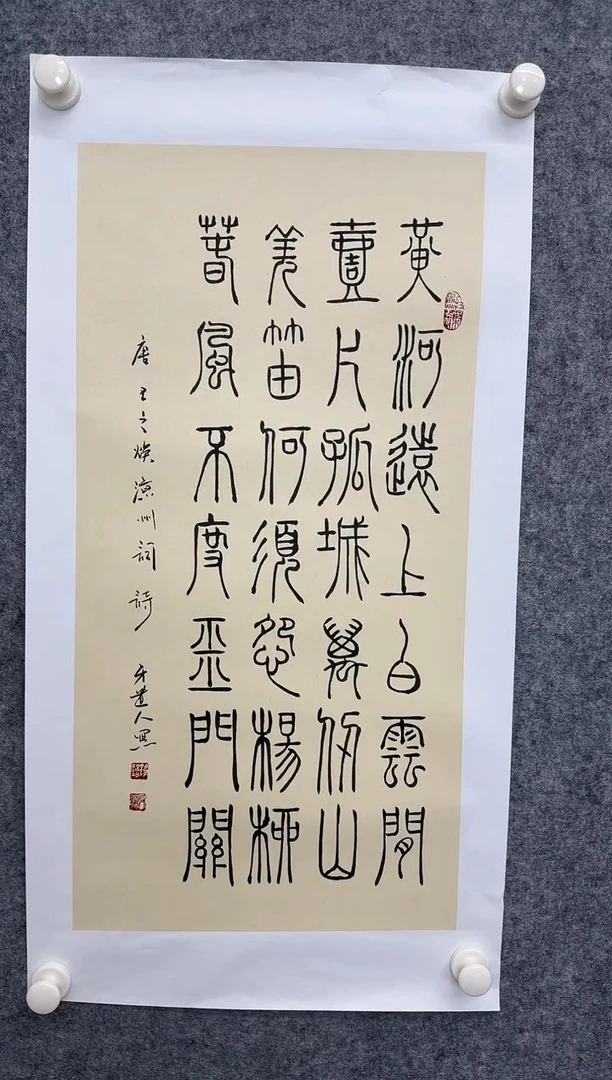 黃河遠上白雲閒
壹片孤城萬仞山
羌笛何須怨楊柳
春風不度玉門關
唐王之煥涼州詞詩
道人